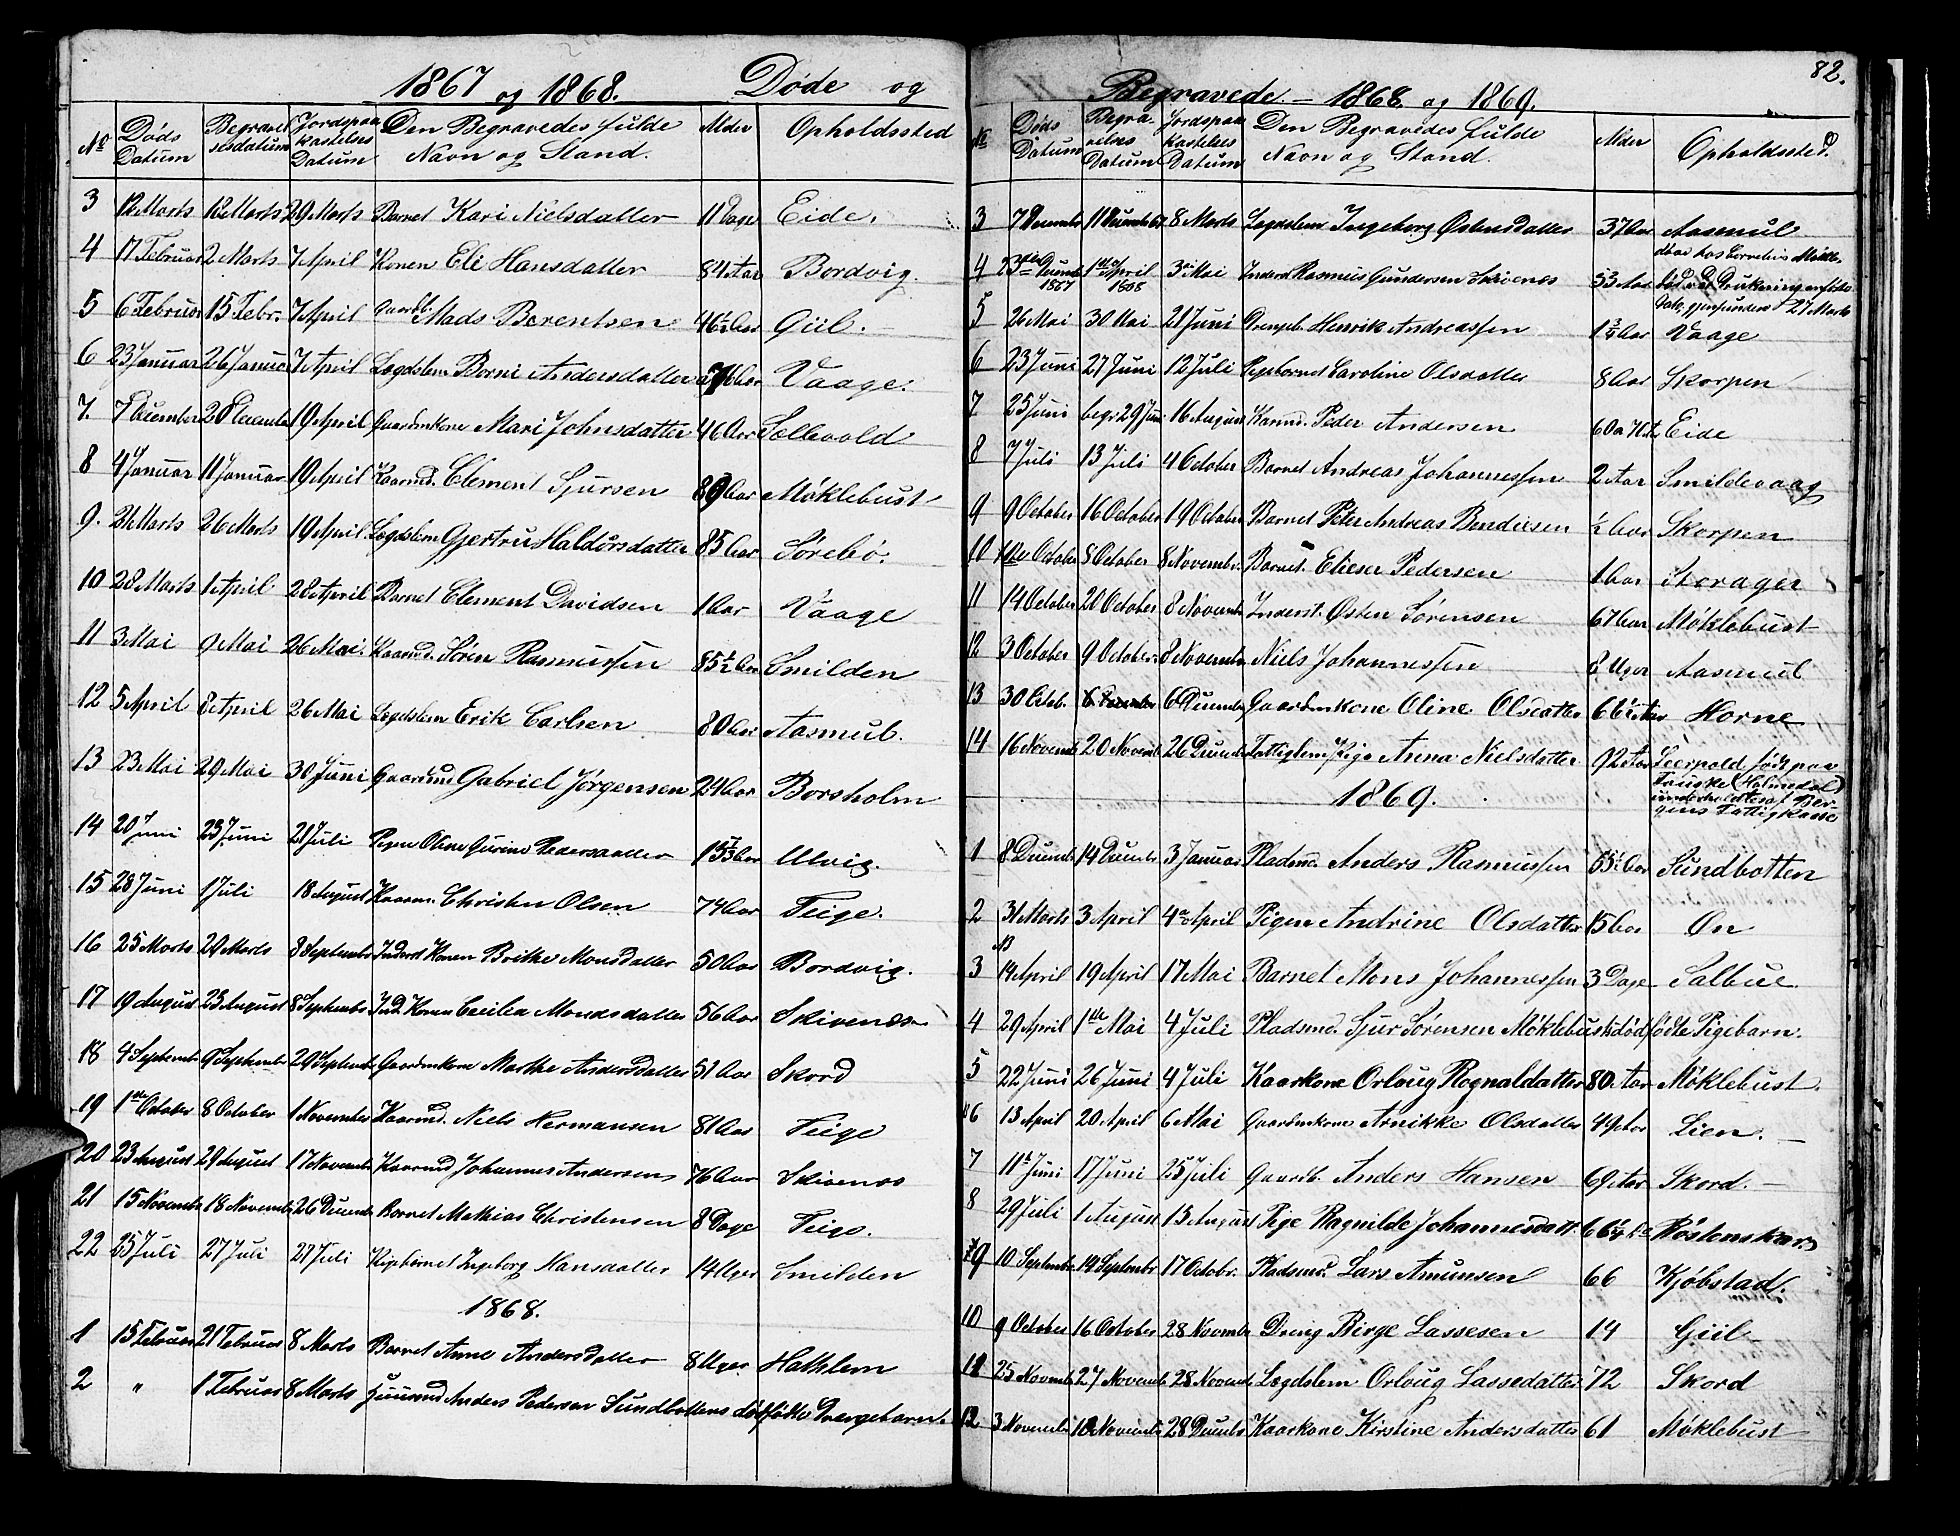 1867 og 1868. Døde og
No Døds Datum Begravelsesdatum Jordspaakastelses Datum Den Begravedes fulde Navn og Stand. Alder Opholdssted
3 12 Marts 13 Marts 29 Marts Barnet Kari Nielsdatter 11 Dage Eide.
4 17 Februar 2 Marts 7 April Konen Eli Hansdatter 84 Aar Bordvig.
5 6 Februar 15 Febr. 7 April Mads Berentsen 46½ Aar Giil.
6 23 Januar 26 Januar 7 April Lægdslem Borni Andersdatter Aar Vaage.
7. 7 December 28 December 19 April Gaardmkone Mari Johnsdatter 46 Aar Sollevold
8 4 Januar 11 Januar 19 April Kaarmd. Clement Sjursen Aar Møklebust
9. 21 Marts 26 Marts 19 April Lægdslem Gjertru Haldorsdatter 85 Aar Sørebø.
10 28 Marts 1 April 28 April Barnet Clement Davidsen 1 Aar Vaage
11 3 Mai 9 Mai 26 Mai. Kaarmd. Søren Rasmussen 85½ Aar Smilden
12 5 April 8 April 26 Mai Lægdslem Erik Carlsen 80 Aar Aasmul.
13 23 Mai 29 Mai 30 Juni Gaardmd Gabriel Jørgensen 24 Aar Borsholm
14 20 Juni 23 Juni 21 Juli Pigen Oline Gurine Pedersdatter Aar Ulvig.
15 28 Juni 1 Juli 18 August Kaarm. Christen Olsen 74 Aar Teige.
16 25 Marts 29 Marts 8 September Inderst Konen Brithe Monsdatter 50 Aar Bordvig.
17 19 August 23 August 8 September Ind. Konen Cecilia Monsdatter 56 Aar Skivenes
18 4 September 9 September 29 September Gaardmkone Marthe Andersdatter 51 Aar Skord
19 1ste October 8 October 1 November Kaarmd. Niels Hermansen 81 Aar Teige
20 23 August 29 August 17 November Kaarmd Johannes Andersens 76 Aar Skivenes
21 15 November 18 November 26 December Barnet Mathias Christensen 8 Dage Teige.
22 25 Juli 27 Juli 27 Juli Pigebarnet Ingeborg Hansdatter 14 Uger Smilden
1868.
1 15 Februar 21 Februar 8 Marts Barnet Anne Andersdatter 8 Uger Hathlem
2 " 1 Februar 8 Marts Huusmd Anders Pedersen Sundbottens dødfødte Drengebarn.
82.
Begravede. – 1868 og 1869.
No Døds Datum Begravelses Datum Jordspaakastelses Datum Den Begravedes fulde Navn og Stand. Alder Opholdssted.
3 7 December 11 December 67 8 Marts Lægdslem Ingeborg Østensdatter 37 Aar Aasmul
4 23de December 1867 1ste April 1868 3die Mai Inderst Rasmus Gundersen Skivenes 53 Aar
27 Marts
5 26 Mai 30 Mai 21 Juni Drengeb. Henrik Andreassen Aar Vaage
6 23 Juni 27 Juni 12 Juli Pigebarnet Caroline Olsdatter 8 Aar Skorpen
7 25 Juni begr. 29 Juni 16 August Kaarmd. Peder Andersen Eide
8 7 Juli 13 Juli 4 October Barnet Andreas Johannessen 2 Aar Smildevaag
9 9 October 16 October 19 October Barnet Peter Andreas Bendixsen ½ Aar Skorpen
10 1ste October 8 October 8 Novembr. Barnet. Elieser Pedersen 1 Aar Storager
11 14 October 20 October 8 November Inderst. Østen Sørensen 67 Aar Møklebust
12 3 October 9 October 8 November Niels Johannessen 8 Uger Aasmul
13 30 Octob. 6 December 6 December Gaardmkone Oline Olsdatter 66½ Aar Horne
14 16 November 20 November 26 December Fattiglem Pige Anna Nielsdatter 92 Aar Leerpold født paa
(Holmedal)
underholdtes af Bergens Fattigkasse
1869.
1 8 December 14 December 3 Januar Pladsmd. Anders Rasmussen Aar Sundbotten
2 31 Marts 3 April 4de April Pigen Andrine Olsdatter 15 Aar Øn
3 14 April 19 April 17 Mai Barnet Mons Johannessen 3 Dage Salbue
4 29 April 1ste Mai 4 Juli Pladsmd. Sjur Sørensen Møklebusts dødfødte Pigebarn.
5 22 Juni 26 Juni 4 Juli Kaarkone Orloug Rognaldatter 80 Aar Møklebust.
6 13 April 20 April 6 Mai Gaardmkone Arnikke Olsdatter 49 Aar Lien.
7 11 Juni 17 Juni 25 Juli Gaardb. Anders Hansen 69 Aar Skord.
8 29 Juli 1 August 13 August Pige Ragnilde Johannesdatt. 66½ Aar Røstenskar
9 10 Septembr 14 Septembr 17 Octobr. Pladsmd. Lars Amundsen 66 Kjøbstad.
10 9 October 16 October 28 November Dreng Birge Lassesen 14 Giil
11 25 Novemb 27 Novemb 28 Novemb Lægdslem Orloug Lassedatter 72 Skord
12. 3 November 10 November 28 December Kaarkone Kirstine Andersdatter 61 Møklebust